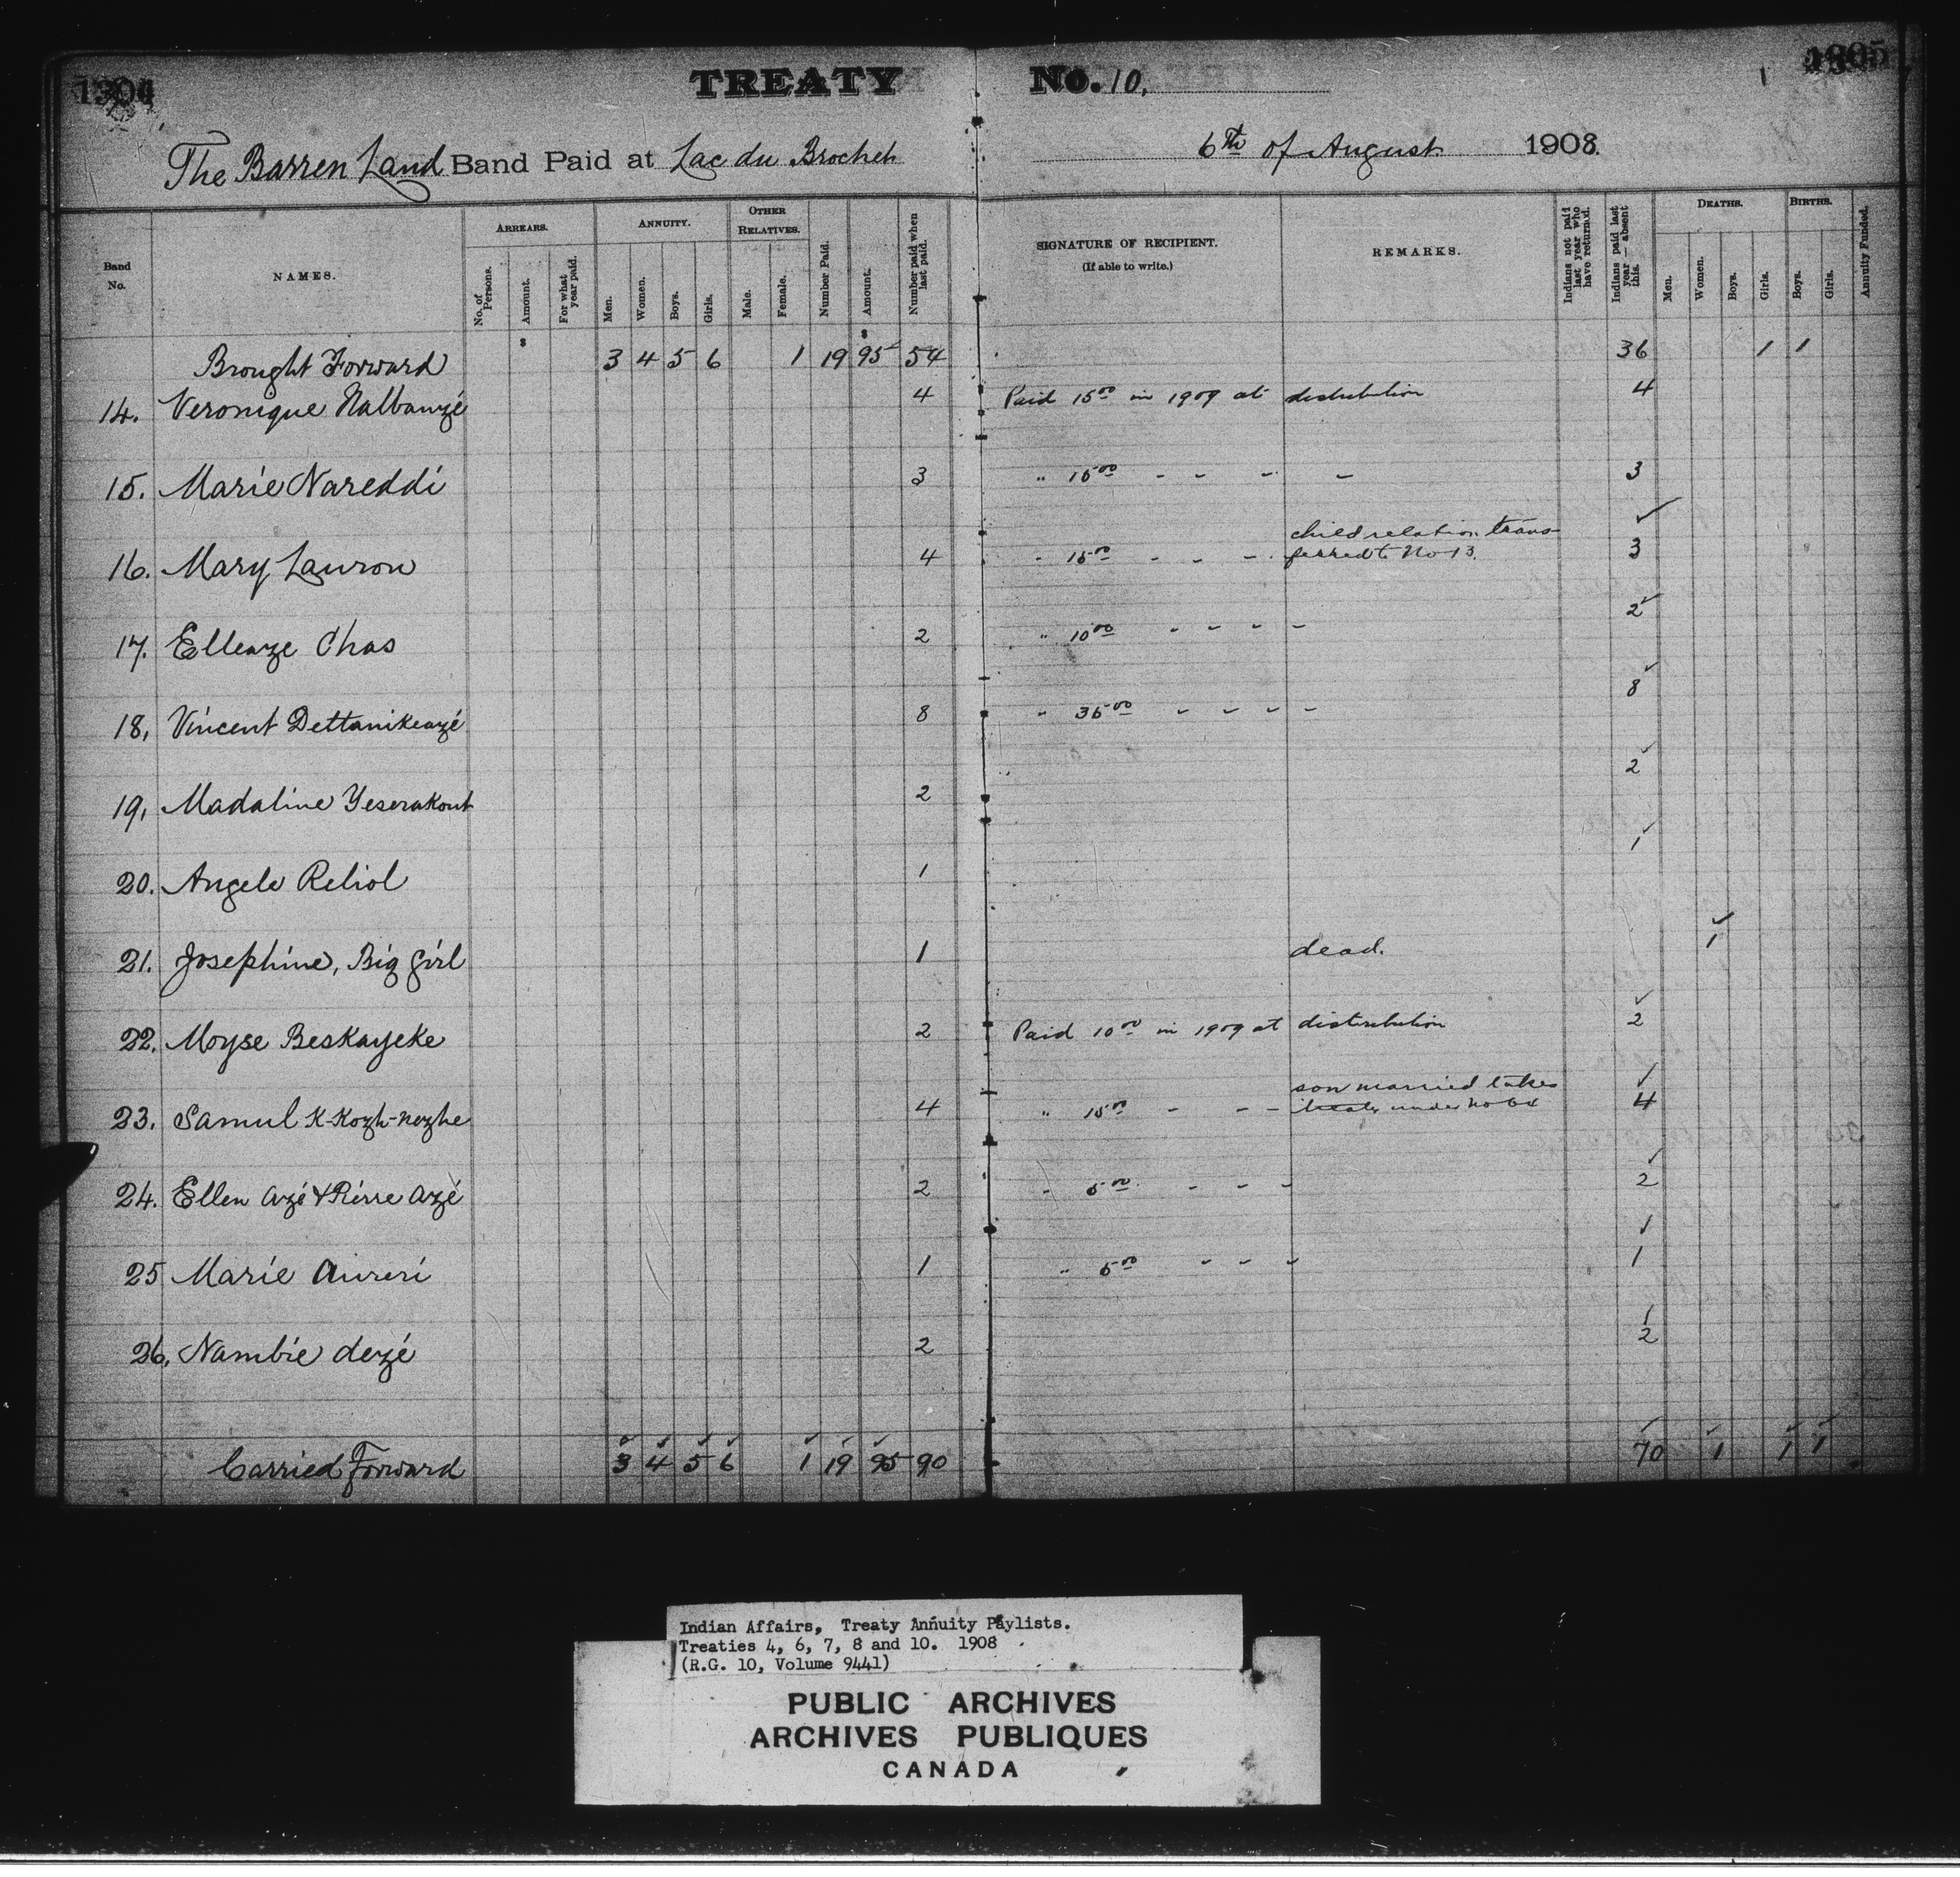 1304
TREATY No. 10.
The Barren Land Band Paid at Lac du Brochet 6th of August 1908.
Band No.
NAMES.
ARREARS.
No. of Persons.
Amount.
For what year paid.
ANNUITY.
Men.
Women.
Boys.
Girls.
OTHER RELATIVES.
Male.
Female.
Number Paid.
Amount.
Number paid when last paid.
SIGNATURE OF RECIPIENT.
(If able to write.)
REMARKS.
Indians not paid last year who have returned.
Indians paid last year—absent this.
DEATHS.
Men.
Women.
Boys.
Girls.
BIRTHS.
Boys.
Girls.
Annuity Funded.
$ $
Brought Forward 3 4 5 6 1 19 95 54 36 1 1
14. Veronique Nalbanzé 4 Paid 15 00 in 1909 at distribution 4
15. Marie Nareddi 3 " 15 00 - - - - 3
child relation trans-
16. Mary Lauron 4 " 15 00 - - - ferred to No 13. 3
17. Ellenze Chas 2 " 10 00 - - - - 2
18, Vincent Dettanikeazé 8 " 35 00 - - - - 8
19, Madaline Yeserakout 2 2
20. Angele Reliol 1 1
21. Josephine, Big girl 1 dead. 1
22. Moyse Beskayeke 2 Paid 10 00 in 1909 at distribution 2
son married takes
23. Samul K-Kozh-nezhe 4 " 15 00 - - - treaty under No 4
24. Ellen Azé & Pierre Azé 2 " 5 00 - - - 2
25 Marie Aureri 1 " 5 00 - - - 1
26, Nambie dezé 2 2
Carried Forward 3 4 5 6 1 19 95 90 70 1 1 1
Indian Affairs, Treaty Annuity Paylists.
Treaties 4, 6, 7, 8 and 10. 1908
(R.G. 10, Volume 9441)
PUBLIC ARCHIVES
ARCHIVES PUBLIQUES
CANADA